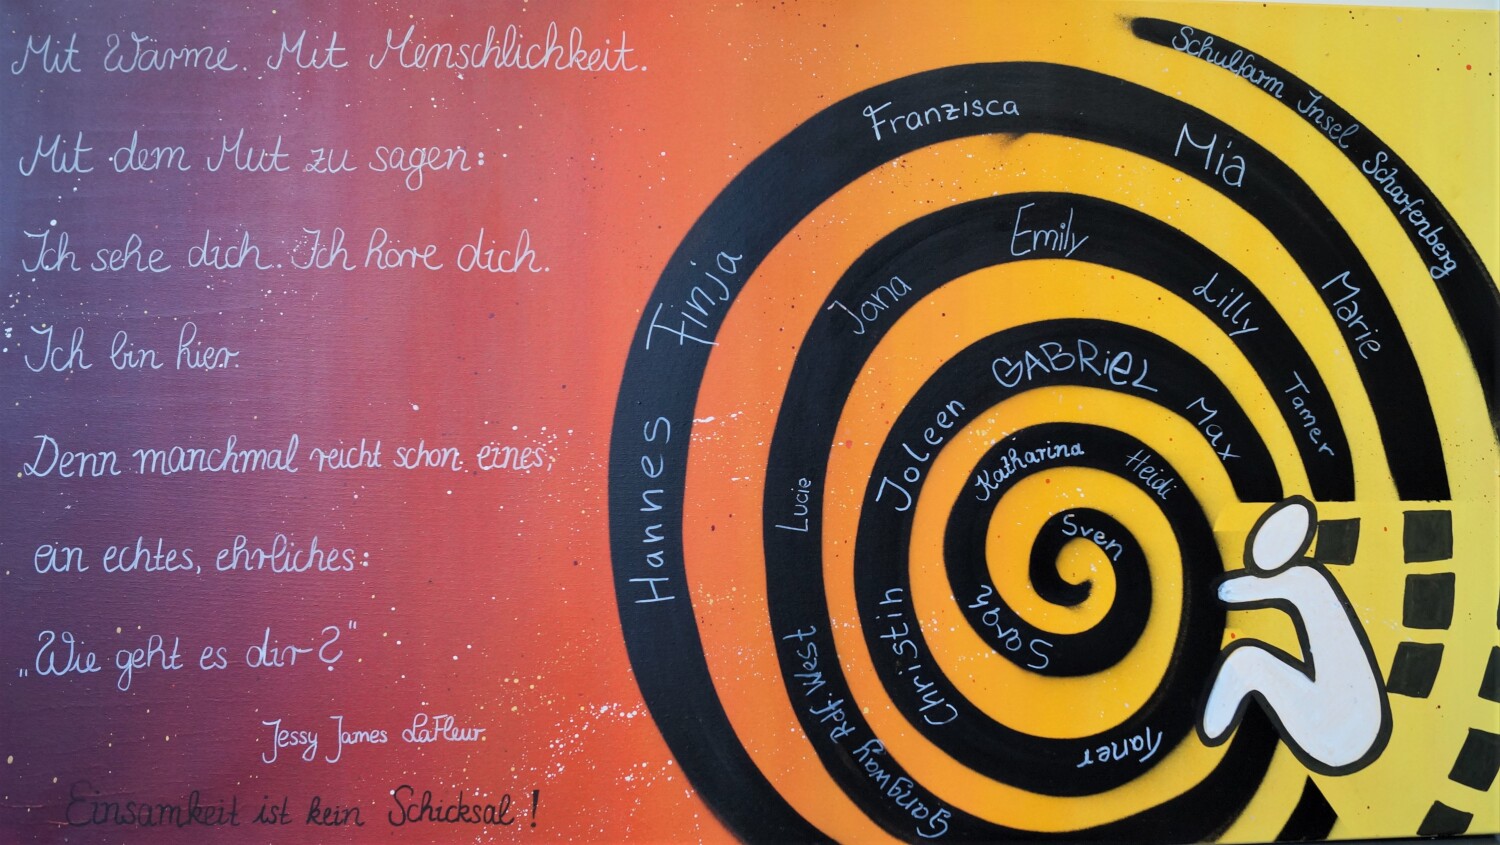 Mit Wärme. Mit Menschlichkeit.
Mit dem Mut zu sagen:
Ich sehe dich. Ich höre dich.
Ich bin hier.
Denn manchmal reicht schon eines,
ein echtes, ehrliches:
„Wie geht es dir?“
Jessy James LaFleur.
Einsamkeit ist kein Schicksal!
Schulfarm Insel Scharfenberg
Marie
Mia
Franzisca
Finja
Hannes
Gangway Rdf. West
Lucie
Jana
Emily
Lilly
Tamer
Max
GABRiEL
Joleen
Christin
Taner
Heidi
Katharina
Sarah
Sven